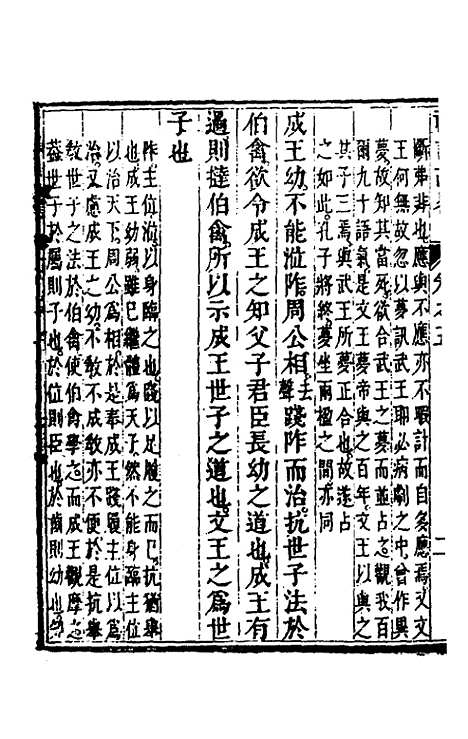 斷弗非也應與不應亦不暇計而自多應焉又文
王何無故忽以夢訊武王耶必病劇之中曾作異
夢故知其當死欲合武王之夢而並占之觀我百
爾九十語氣是文王夢帝與之百年文王以與之
其子三焉與武王所夢正合也故遂占
之如此孔子將終夢坐兩楹之間亦同
成王幼不能涖阼周公相去聲踐阼而治抗世子法於
伯禽欲令成王之知父子君臣長幼之道也成王有
過則撻伯禽所以示成王世子之道也文王之爲世
子也
阼主位涖以身臨之也踐以足履之而已抗猶舉
也成王幼弱雖已繼體爲天子然不能身臨主位
以治天下周公爲相於是奉成王踐履主位以爲
治又慮成王之幼不敎不成敎亦不便於是抗舉
敎世子之法於伯禽使伯禽學之而成王觀摩之
蓋世子於屬則子也於位則臣也於齒則幼也學